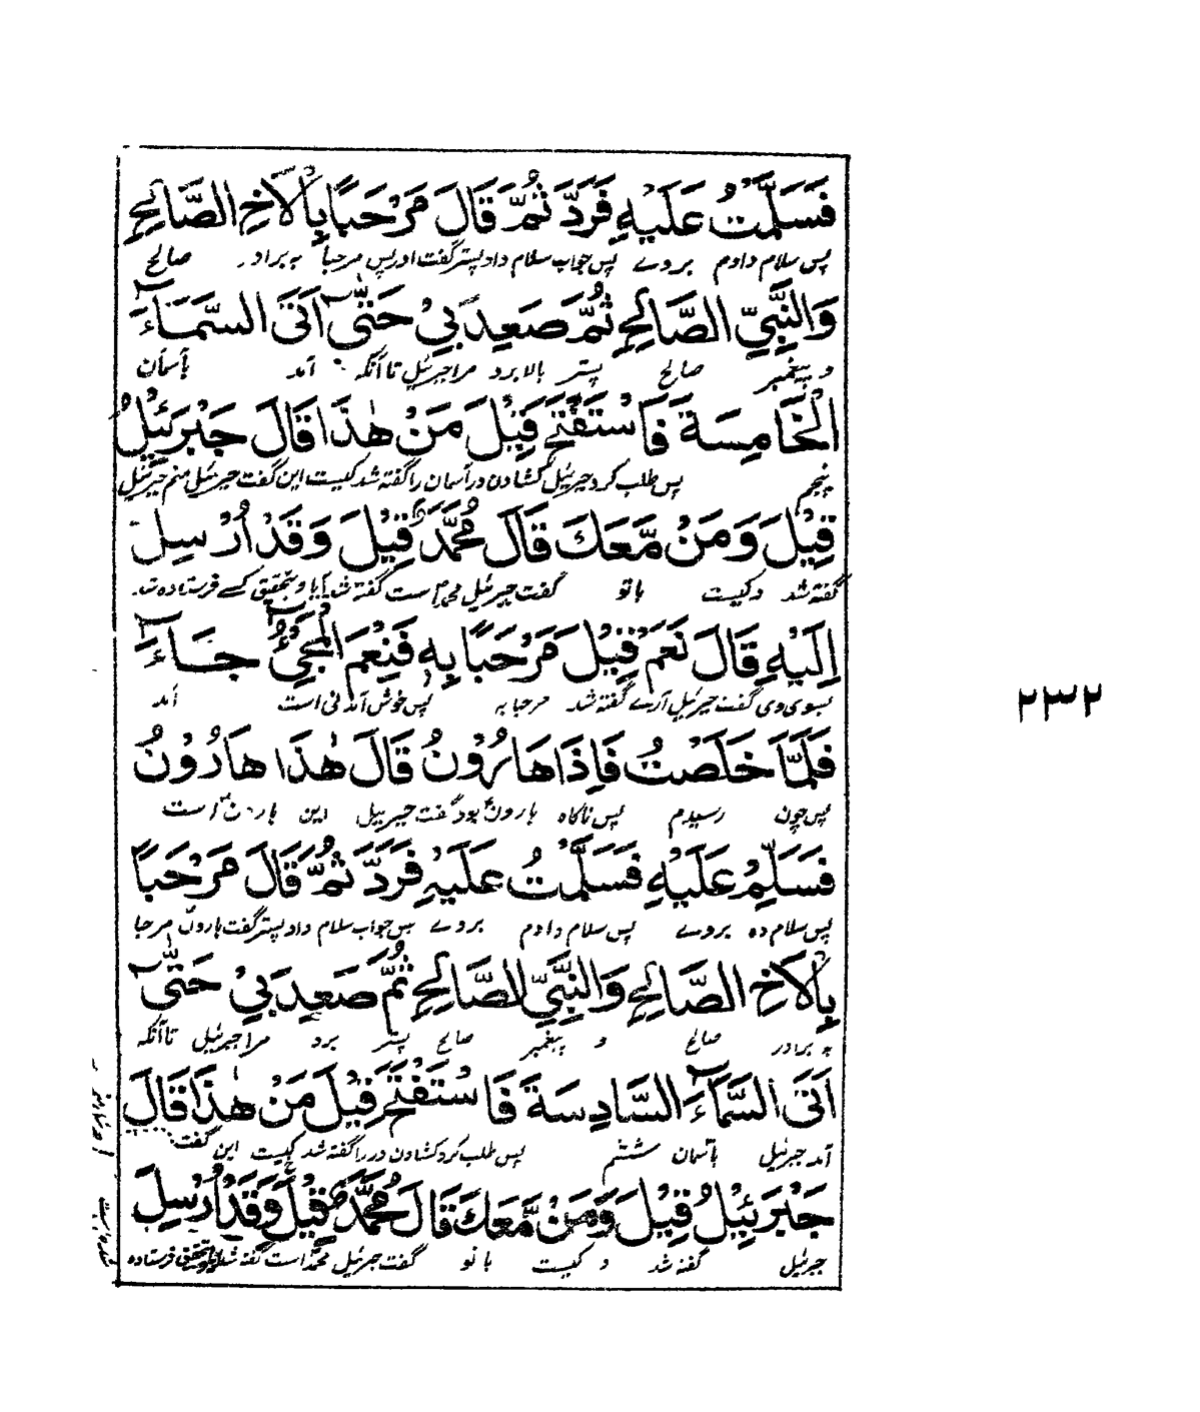 فَسَلَّمْتُ عَلَيْهِ فَرَدَّ ثُمَّ قَالَ مَرْحَبًا بِالْاَخِ الصَّالِحِ
پس سلام دادم بروے پس جواب سلام داد پستر گفت ادریس مرحبا به برادر صالح
وَالنَّبِيِّ الصَّالِحِ ثُمَّ صَعِدَ بِيْ حَتّٰى اَتَى السَّمَآءَ
و پیغمبر صالح پستر بالا برد مرا جبرئیل تا آنکه آمد بآسمان
الْخَامِسَةَ فَاسْتَفْتَحَ قِيْلَ مَنْ هٰذَا قَالَ جَبْرَئِيْلُ
پنجم پس طلب کرد جبرئیل کشادن در آسمان را گفته شد کیست این گفت جبرئیل منم جبرئیل
قِيْلَ وَمَنْ مَّعَكَ قَالَ مُحَمَّدٌ قِيْلَ وَقَدْ اُرْسِلَ
گفته شد و کیست با تو گفت جبرئیل محمد است گفته شد آیا و بتحقیق کسے فرستاده شد
اِلَيْهِ قَالَ نَعَمْ قِيْلَ مَرْحَبًا بِهٖ فَنِعْمَ الْمَجِيْٓءُ جَآءَ
بسوی وی گفت جبرئیل آرے گفته شد مرحبا به پس خوش آمدنی است آمد
فَلَمَّا خَلَصْتُ فَاِذَا هَارُوْنُ قَالَ هٰذَا هَارُوْنُ
پس چون رسیدم پس ناگاه هارون بود گفت جبرییل این هارون است
فَسَلِّمْ عَلَيْهِ فَسَلَّمْتُ عَلَيْهِ فَرَدَّ ثُمَّ قَالَ مَرْحَبًا
پس سلام ده بروے پس سلام دادم بروے پس جواب سلام داد پستر گفت هارون مرحبا
بِالْاَخِ الصَّالِحِ وَالنَّبِيِّ الصَّالِحِ ثُمَّ صَعِدَ بِيْ حَتّٰى
به برادر صالح و پیغمبر صالح پستر برد مرا جبرئیل تا آنکه
اَتَى السَّمَآءَ السَّادِسَةَ فَاسْتَفْتَحَ قِيْلَ مَنْ هٰذَا قَالَ
آمد جبرئیل بآسمان ششم پس طلب کرد کشادن در را گفته شد کیست این گفت
جَبْرَئِيْلُ قِيْلَ وَمَنْ مَّعَكَ قَالَ مُحَمَّدٌ قِيْلَ وَقَدْ اُرْسِلَ
جبرئیل گفته شد و کیست با تو گفت جبرئیل محمد است گفته شد بتحقیق فرستاده
۲۳۲